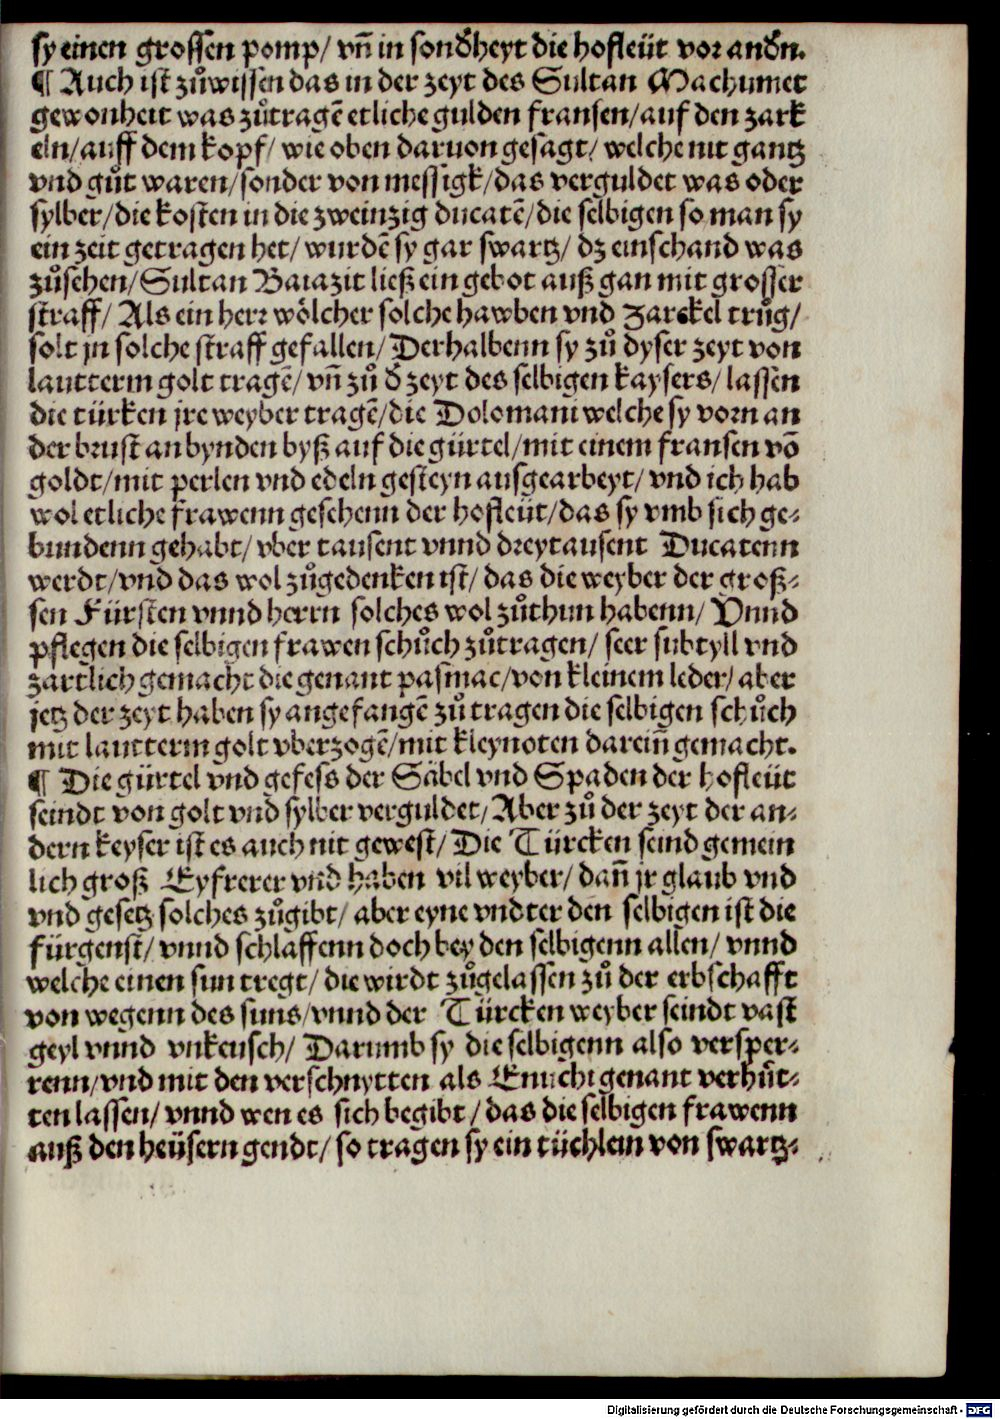 sy einen grossen pomp/ vñ in sonđheyt die hofleüt vor anđn.
¶ Auch ist zůwissen das in der zeyt des Sultan Machumet
gewonheit was zůtragẽ etliche gulden fransen/auf den zark
eln/auff dem kopf/ wie oben daruon gesagt/ welche nit gantz
vnd gůt waren/sonder von messigk/das verguldet was oder
sylber/die kosten in die zweinzig ducatẽ/die selbigen so man sy
ein zeit getragen het/ wurdẽ sy gar swartz/ dz ein schand was
zůsehen/Sultan Baiazit ließ ein gebot auß gan mit grosser
straff/ Als ein herr wölcher solche hawben vnd Zarckel trůg/
solt jn solche straff gefallen/ Derhalbenn sy zů dyser zeyt von
lautterm golt tragẽ/ vñ zů đ zeyt des selbigen kaysers/ lassen
die türken jre weyber tragẽ/die Dolomani welche sy vorn an
der brust an bynden byß auf die gürtel/mit einem fransen võ
goldt/mit perlen vnd edeln gesteyn ausgearbeyt/ vnd ich hab
wol etliche frawenn gesehenn der hofleüt/das sy vmb sich ge-
bundenn gehabt/ vber tausent vnnd dreytausent Ducatenn
werdt/vnd das wol zůgedenken ist/ das die weyber der groß-
sen Fürsten vnnd herrn solches wol zůthun habenn/ Vnnd
pflegen die selbigen frawen schůch zůtragen/ seer subtyll vnd
zartlich gemacht die genant pasmac/von kleinem leder/ aber
jetz der zeyt haben sy angefangẽ zů tragen die selbigen schůch
mit lautterm golt vberzogẽ/mit kleynoten dareiñ gemacht.
¶ Die gürtel vnd gefess der Säbel vnd Spaden der hofleüt
seindt von golt vnd sylber verguldet/Aber zů der zeyt der an-
dern keyser ist es auch nit gewest/ Die Türcken seind gemein
lich groß Eyfrerer vnd haben vil weyber/ dañ jr glaub vnd
vnd gesetz solches zůgibt/ aber eyne vndter den selbigen ist die
fürgenst/ vnnd schlaffenn doch bey den selbigenn allen/ vnnd
welche einen sun tregt/ die wirdt zůgelassen zů der erbschafft
von wegenn des suns/vnnd der Türcken weyber seindt vast
geyl vnnd vnkeusch/ Darumb sy die selbigenn also versper-
renn/vnd mit den verschnytten als Enuchi genant verhůt-
ten lassen/ vnnd wen es sich begibt/ das die selbigen frawenn
auß den heüsern gendt/ so tragen sy ein tüchlein von swartz-
Digitalisierung gefördert durch die Deutsche Forschungsgemeinschaft - DFG